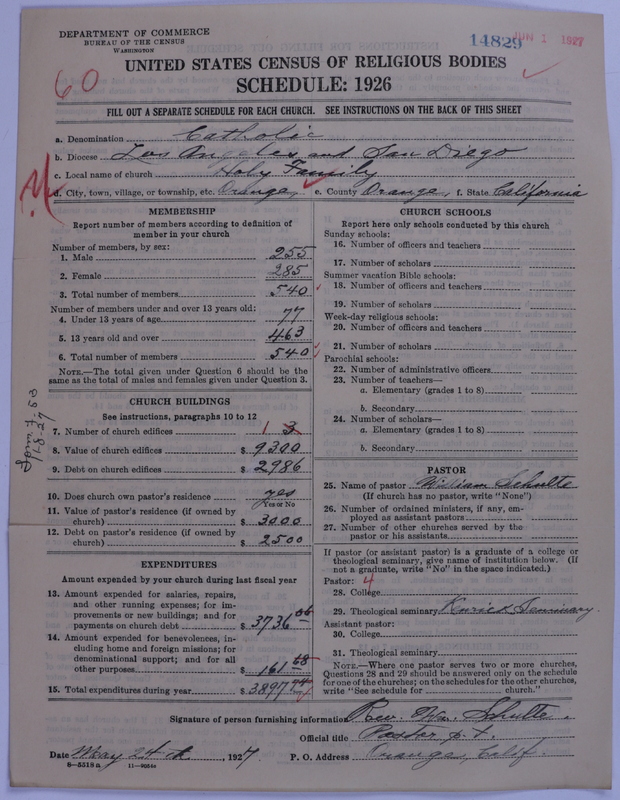 DEPARTMENT OF COMMERCE
BUREAU OF THE CENSUS
WASHINGTON
14829 JUN 1 1927
60
UNITED STATES CENSUS OF RELIGIOUS BODIES
SCHEDULE: 1926
FILL OUT A SEPARATE SCHEDULE FOR EACH CHURCH. SEE INSTRUCTIONS ON THE BACK OF THIS SHEET
a. Denomination Catholic
b. Diocese Los Angeles and San Diego
c. Local name of church Holy Family
d. City, town, village, or township, etc. Orange, e. County Orange, f. State California
MEMBERSHIP
Report number of members according to definition of
member in your church
Number of members, by sex:
1. Male 255
2. Female 285
3. Total number of members 540
Number of members under and over 13 years old:
4. Under 13 years of age 77
5. 13 years old and over 463
6. Total number of members 540
NOTE.—The total given under Question 6 should be
same as the total of males and females given under Question 3.
CHURCH BUILDINGS
See instructions, paragraphs 10 to 12
7. Number of church edifices 1 3
8. Value of church edifices $ 9300
9. Debt on church edifices $ 2986
10. Does church own pastor's residence yes
Yes or No
11. Value of pastor's residence (if owned by
church) $ 3000
12. Debt on pastor's residence (if owned by
church) $ 2500
EXPENDITURES
Amount expended by your church during last fiscal year
13. Amount expended for salaries, repairs,
and other running expenses; for im-
provements or new buildings; and for
payments on church debt $ 3736 06
14. Amount expended for benevolences, in-
cluding home and foreign missions; for
denominational support; and for all
other purposes $ 161 68
15. Total expenditures during year $ 3897 74
CHURCH SCHOOLS
Report here only schools conducted by this church
Sunday schools:
16. Number of officers and teachers
17. Number of scholars
Summer vacation Bible schools:
18. Number of officers and teachers
19. Number of scholars
Week-day religious schools:
20. Number of officers and teachers
21. Number of scholars
Parochial schools:
22. Number of administrative officers
23. Number of teachers—
a. Elementary (grades 1 to 8)
b. Secondary
24. Number of scholars—
a. Elementary (grades 1 to 8)
b. Secondary
PASTOR
25. Name of pastor William Schulte
(If church has no pastor, write "None")
26. Number of ordained ministers, if any, em-
ployed as assistant pastors
27. Number of other churches served by the
pastor or his assistants
If pastor (or assistant pastor) is a graduate of a college or
theological seminary, give name of institution below. (If
not a graduate, write "No" in the space indicated.)
Pastor: 4
28. College
29. Theological seminary Kenrick Seminary.
Assistant pastor:
30. College
31. Theological seminary
NOTE.—Where one pastor serves two or more churches,
Questions 28 and 29 should be answered only on the schedule
for one of the churches; on the schedules for the other churches,
write "See schedule for church."
Signature of person furnishing information Rev. Wm. Schulte.
Official title Pastor p. t.
Date May 24th, 1927 P. O. Address Orange, Calif.
8—5518 a